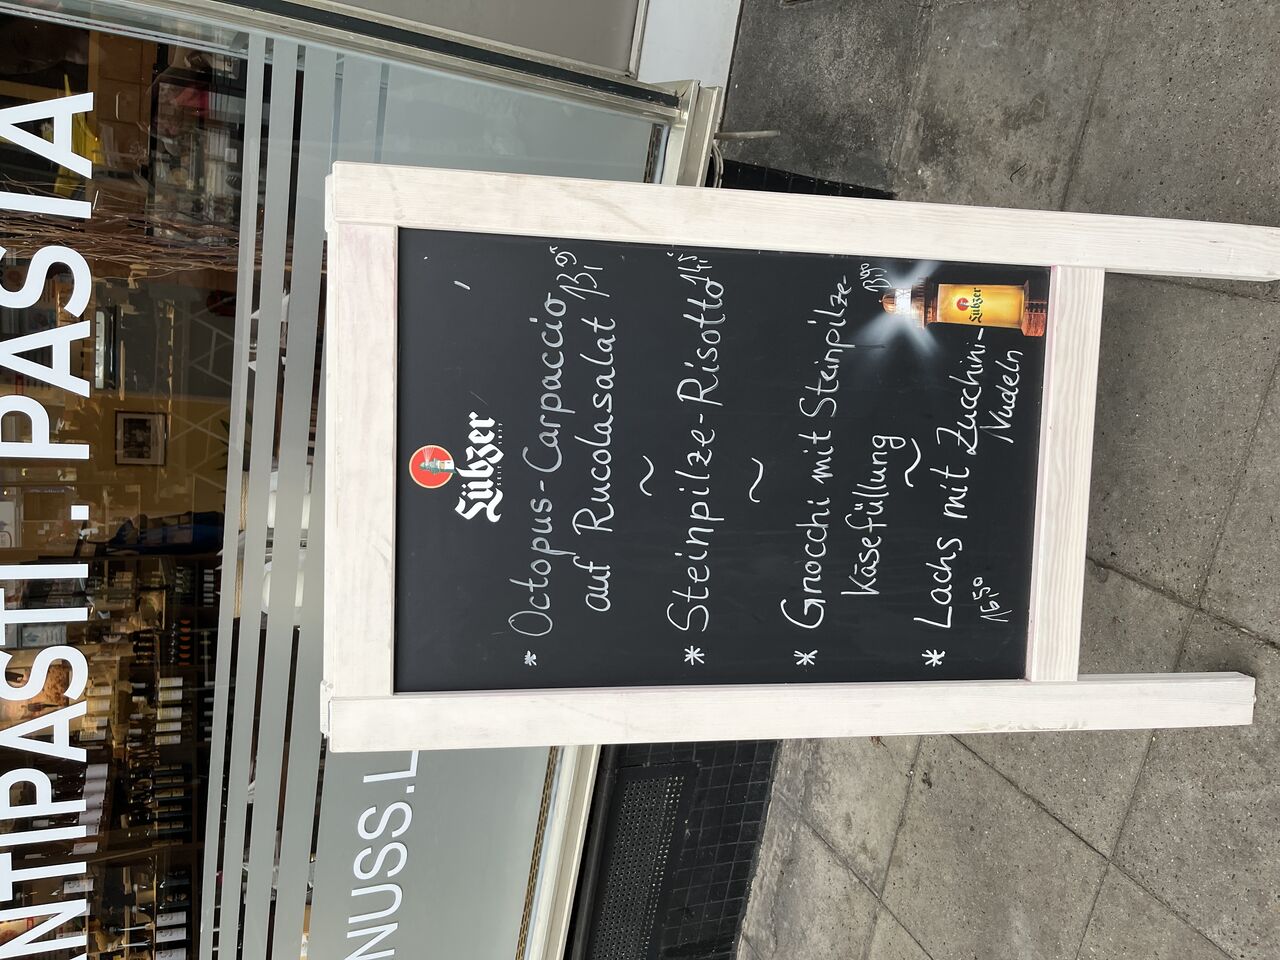 ANTIPASTI . PASTA
NUSS.L
Lübzer
SEIT 1877
* Octopus-Carpaccio
auf Rucolasalat 13,95
~
* Steinpilze-Risotto 14,5
~
* Gnocchi mit Steinpilze-
Käsefüllung 13,90
~
* Lachs mit Zucchini-
16,50 Nudeln
Lübzer